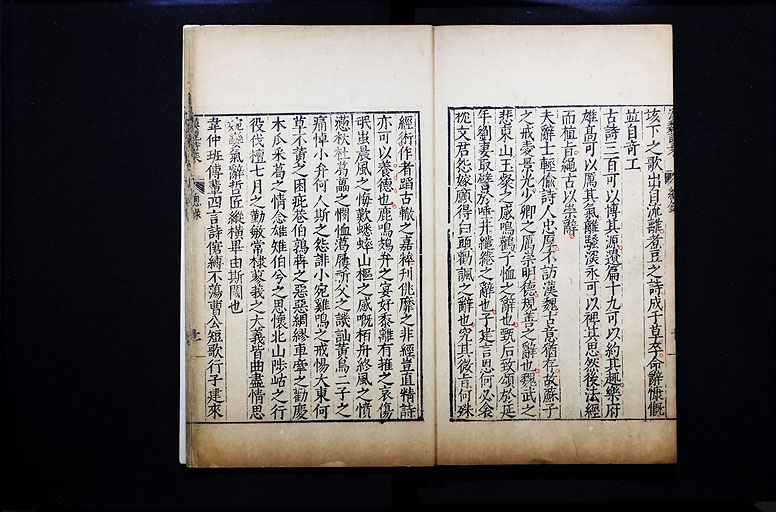 垓下之歌出自流離煮豆之詩成于草率命辭慷慨
並自奇工
古詩三百可以博其源遺篇十九可以約其趣樂府
雄高可以厲其氣離騷深永可以裨其思然後法經
而植旨繩古以崇辭
夫辭士輕偷詩人忠厚不訪漢魏古意猶存故蘇子
之戒愛景光少卿之厲崇明德規善之辭也魏武之
悲東山王粲之感鳴鸛子恤之辭也甄后致頌於延
年劉妻取譬於唾井繾綣之辭也子建言恩何必衾
枕文君怨嫁願得白頭勸諷之辭也究其微旨何殊
經術作者蹈古轍之嘉粹刋佻靡之非經豈直精詩
亦可以養德也鹿鳴頍弁之宴好黍離有蓷之哀傷
氓蚩晨風之悔歎蟋蟀山樞之感嘅栢舟終風之憤
懣杕杜葛藟之憫恤葛屨祈父之譏訕黃鳥二子之
痛悼小弁何人斯之怨誹小宛雞鳴之戒惕大東何
草不黃之困疵巷伯鶉奔之惡惡綢繆車舝之歡慶
木瓜采葛之情念雄雉伯兮之思懷北山陟岵之行
役伐檀七月之勤敏常棣蓼莪之大義皆曲盡情思
婉孌氣辭哲匠縱橫畢由斯閾也
韋仲班傅輩四言詩儜縛不蕩曹公短歌行子建來